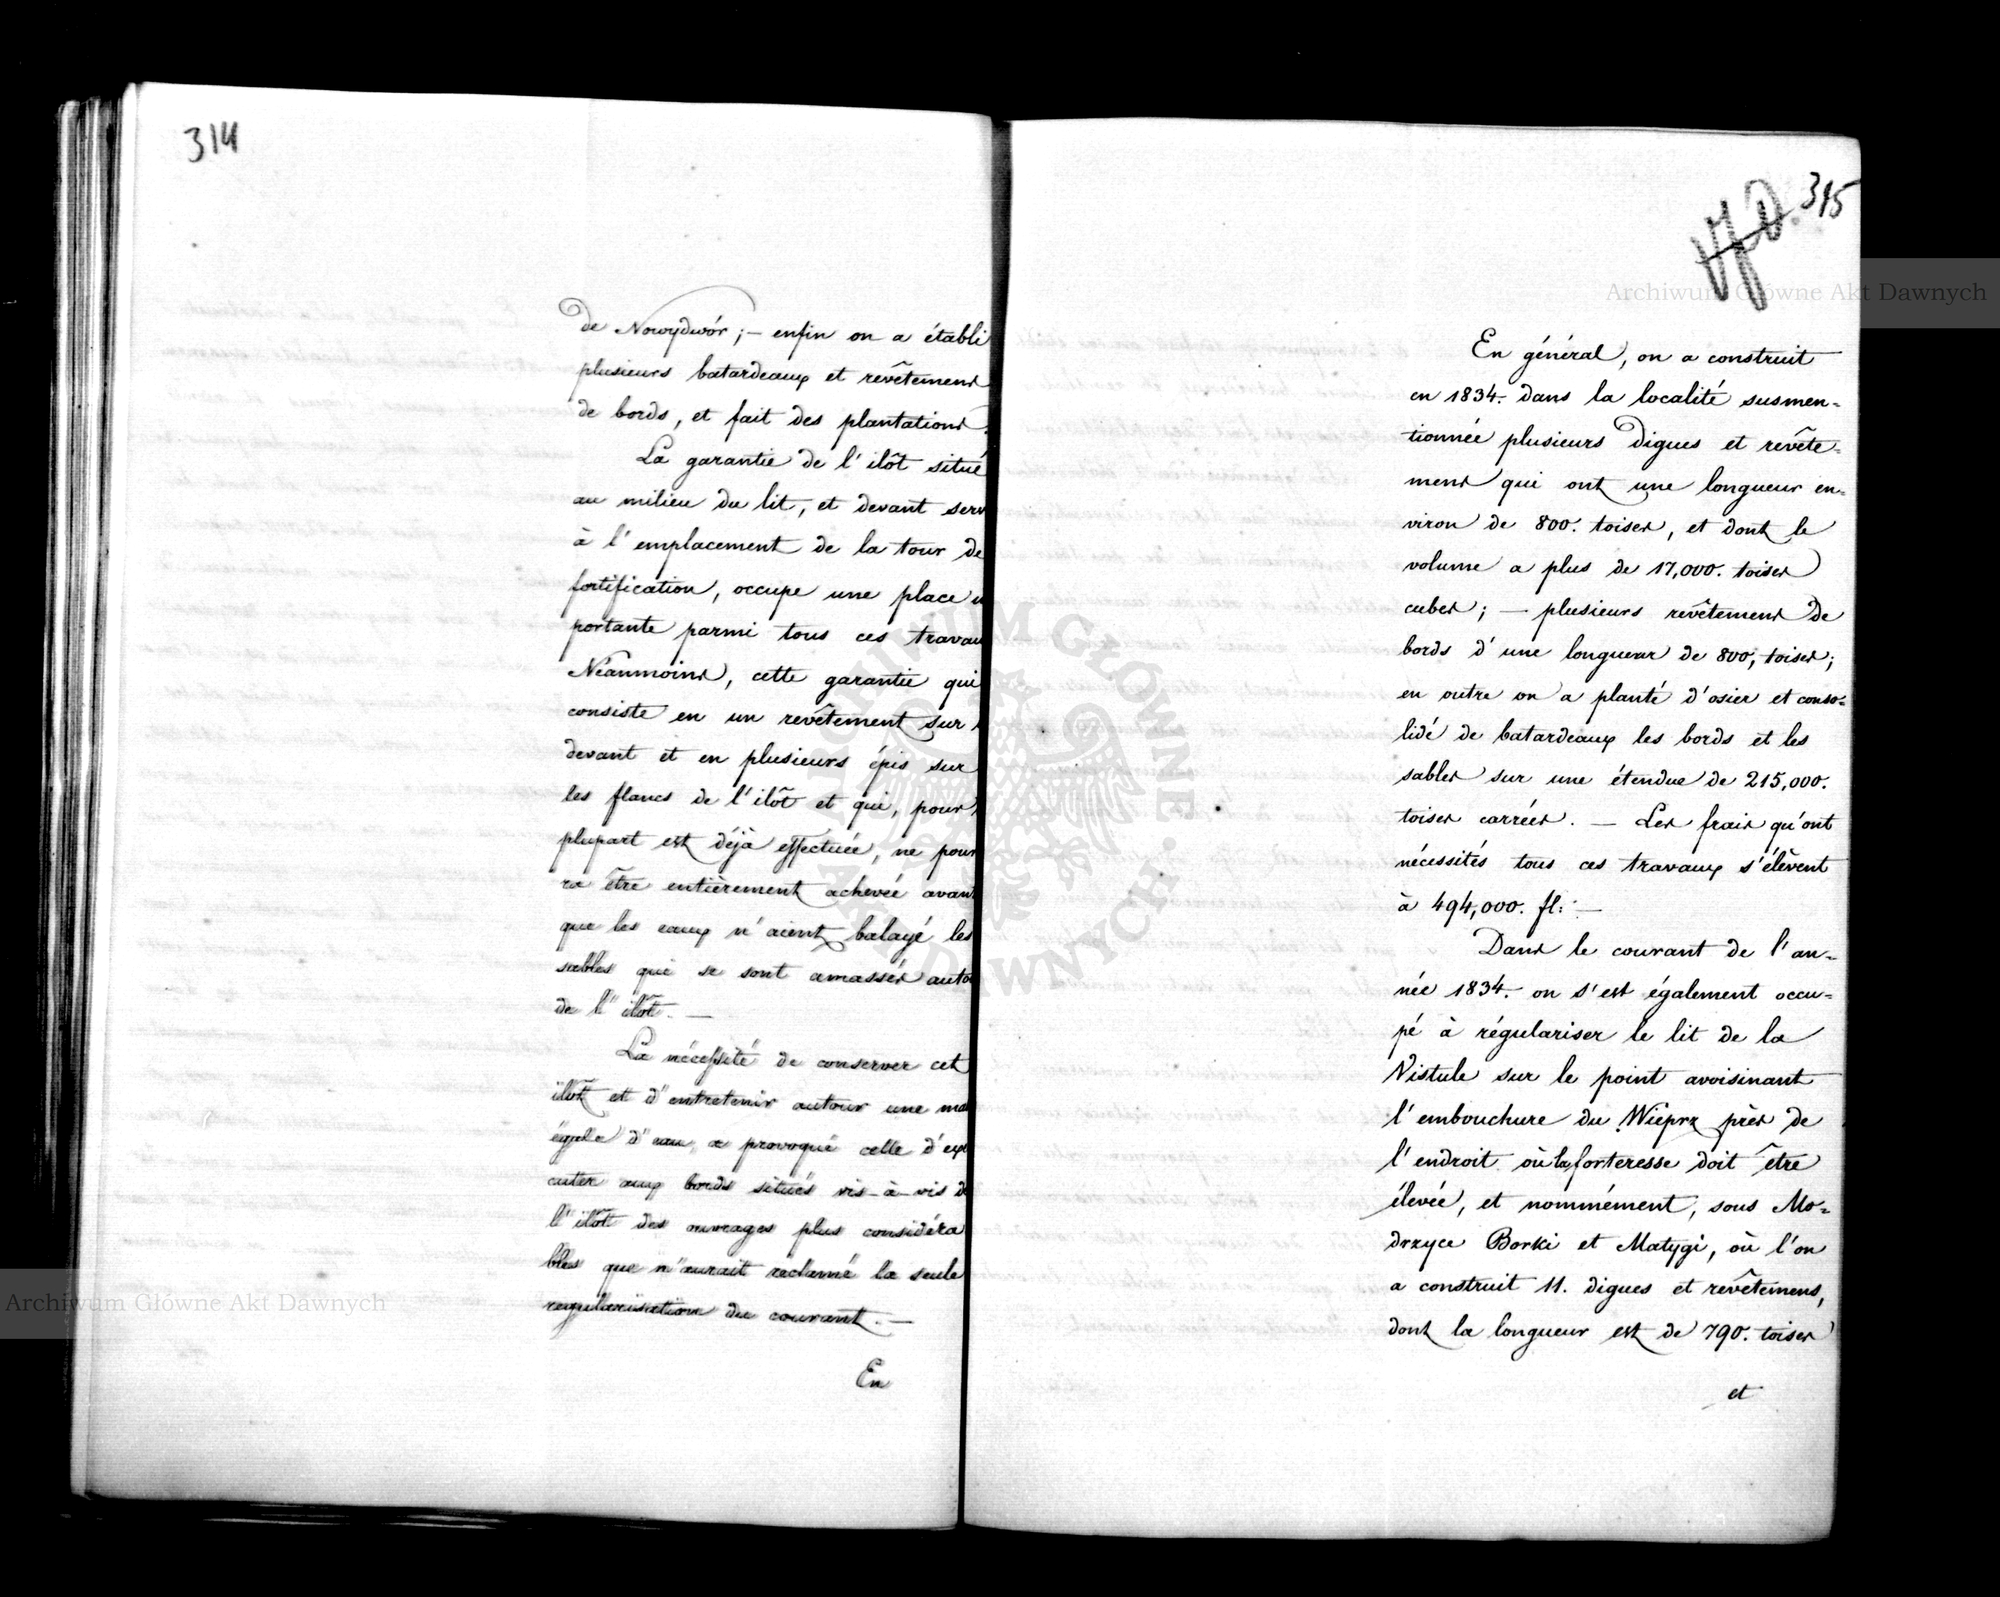 314
de Nowydwór; — enfin on a établi
plusieurs batardeaux et revêtemens
de bords, et fait des plantations.
La garantie de l'ilôt situé
au milieu du lit, et devant serv
à l'emplacement de la tour de
fortification, occupe une place
portante parmi tous ces travau
Néanmoins, cette garantie qui
consiste en un revêtement sur
devant et en plusieurs épis sur
les flancs de l'ilôt et qui, pour
plupart est déjà effectuée, ne pour
ra être entièrement achevée avan
que les eaux n'aient balayé les
sables qui se sont amassés auto
de l'ilôt. —
La nécessité de conserver cet
ilôt et d'entretenir autour une ma
égale d'eau, a provoqué celle d'exé
cuter aux bords situés vis-à-vis d
l'ilôt des ouvrages plus considéra
bles que n'aurait reclamé la seule
regularisation du courant. —
En
315
En général, on a construit
en 1834. dans la localité susmen=
tionnée plusieurs digues et revête=
mens qui ont une longueur en=
viron de 800. toises, et dont le
volume a plus de 17,000. toises
cubes; — plusieurs revêtemens de
bords d'une longueur de 800, toises;
en outre on a planté d'osier et conso=
lidé de batardeaux les bords et les
sables sur une étendue de 215,000.
toises carrées. — Les frais qu'ont
nécessités tous ces travaux s'élèvent
à 494,000. fl: —
Dans le courant de l'an=
née 1834. on s'est également occu=
pé à régulariser le lit de la
Vistule sur le point avoisinant
l'embouchure du Wieprz près de
l'endroit où la forteresse doit être
élevée, et nommément, sous Mo=
drzyce Borki et Matygi, où l'on
a construit 11. digues et revêtemens,
dont la longueur est de 790. toises
et
Archiwum Główne Akt Dawnych
Archiwum Główne Akt Dawnych
ARCHIWUM GŁÓWNE AKT DAWNYCH